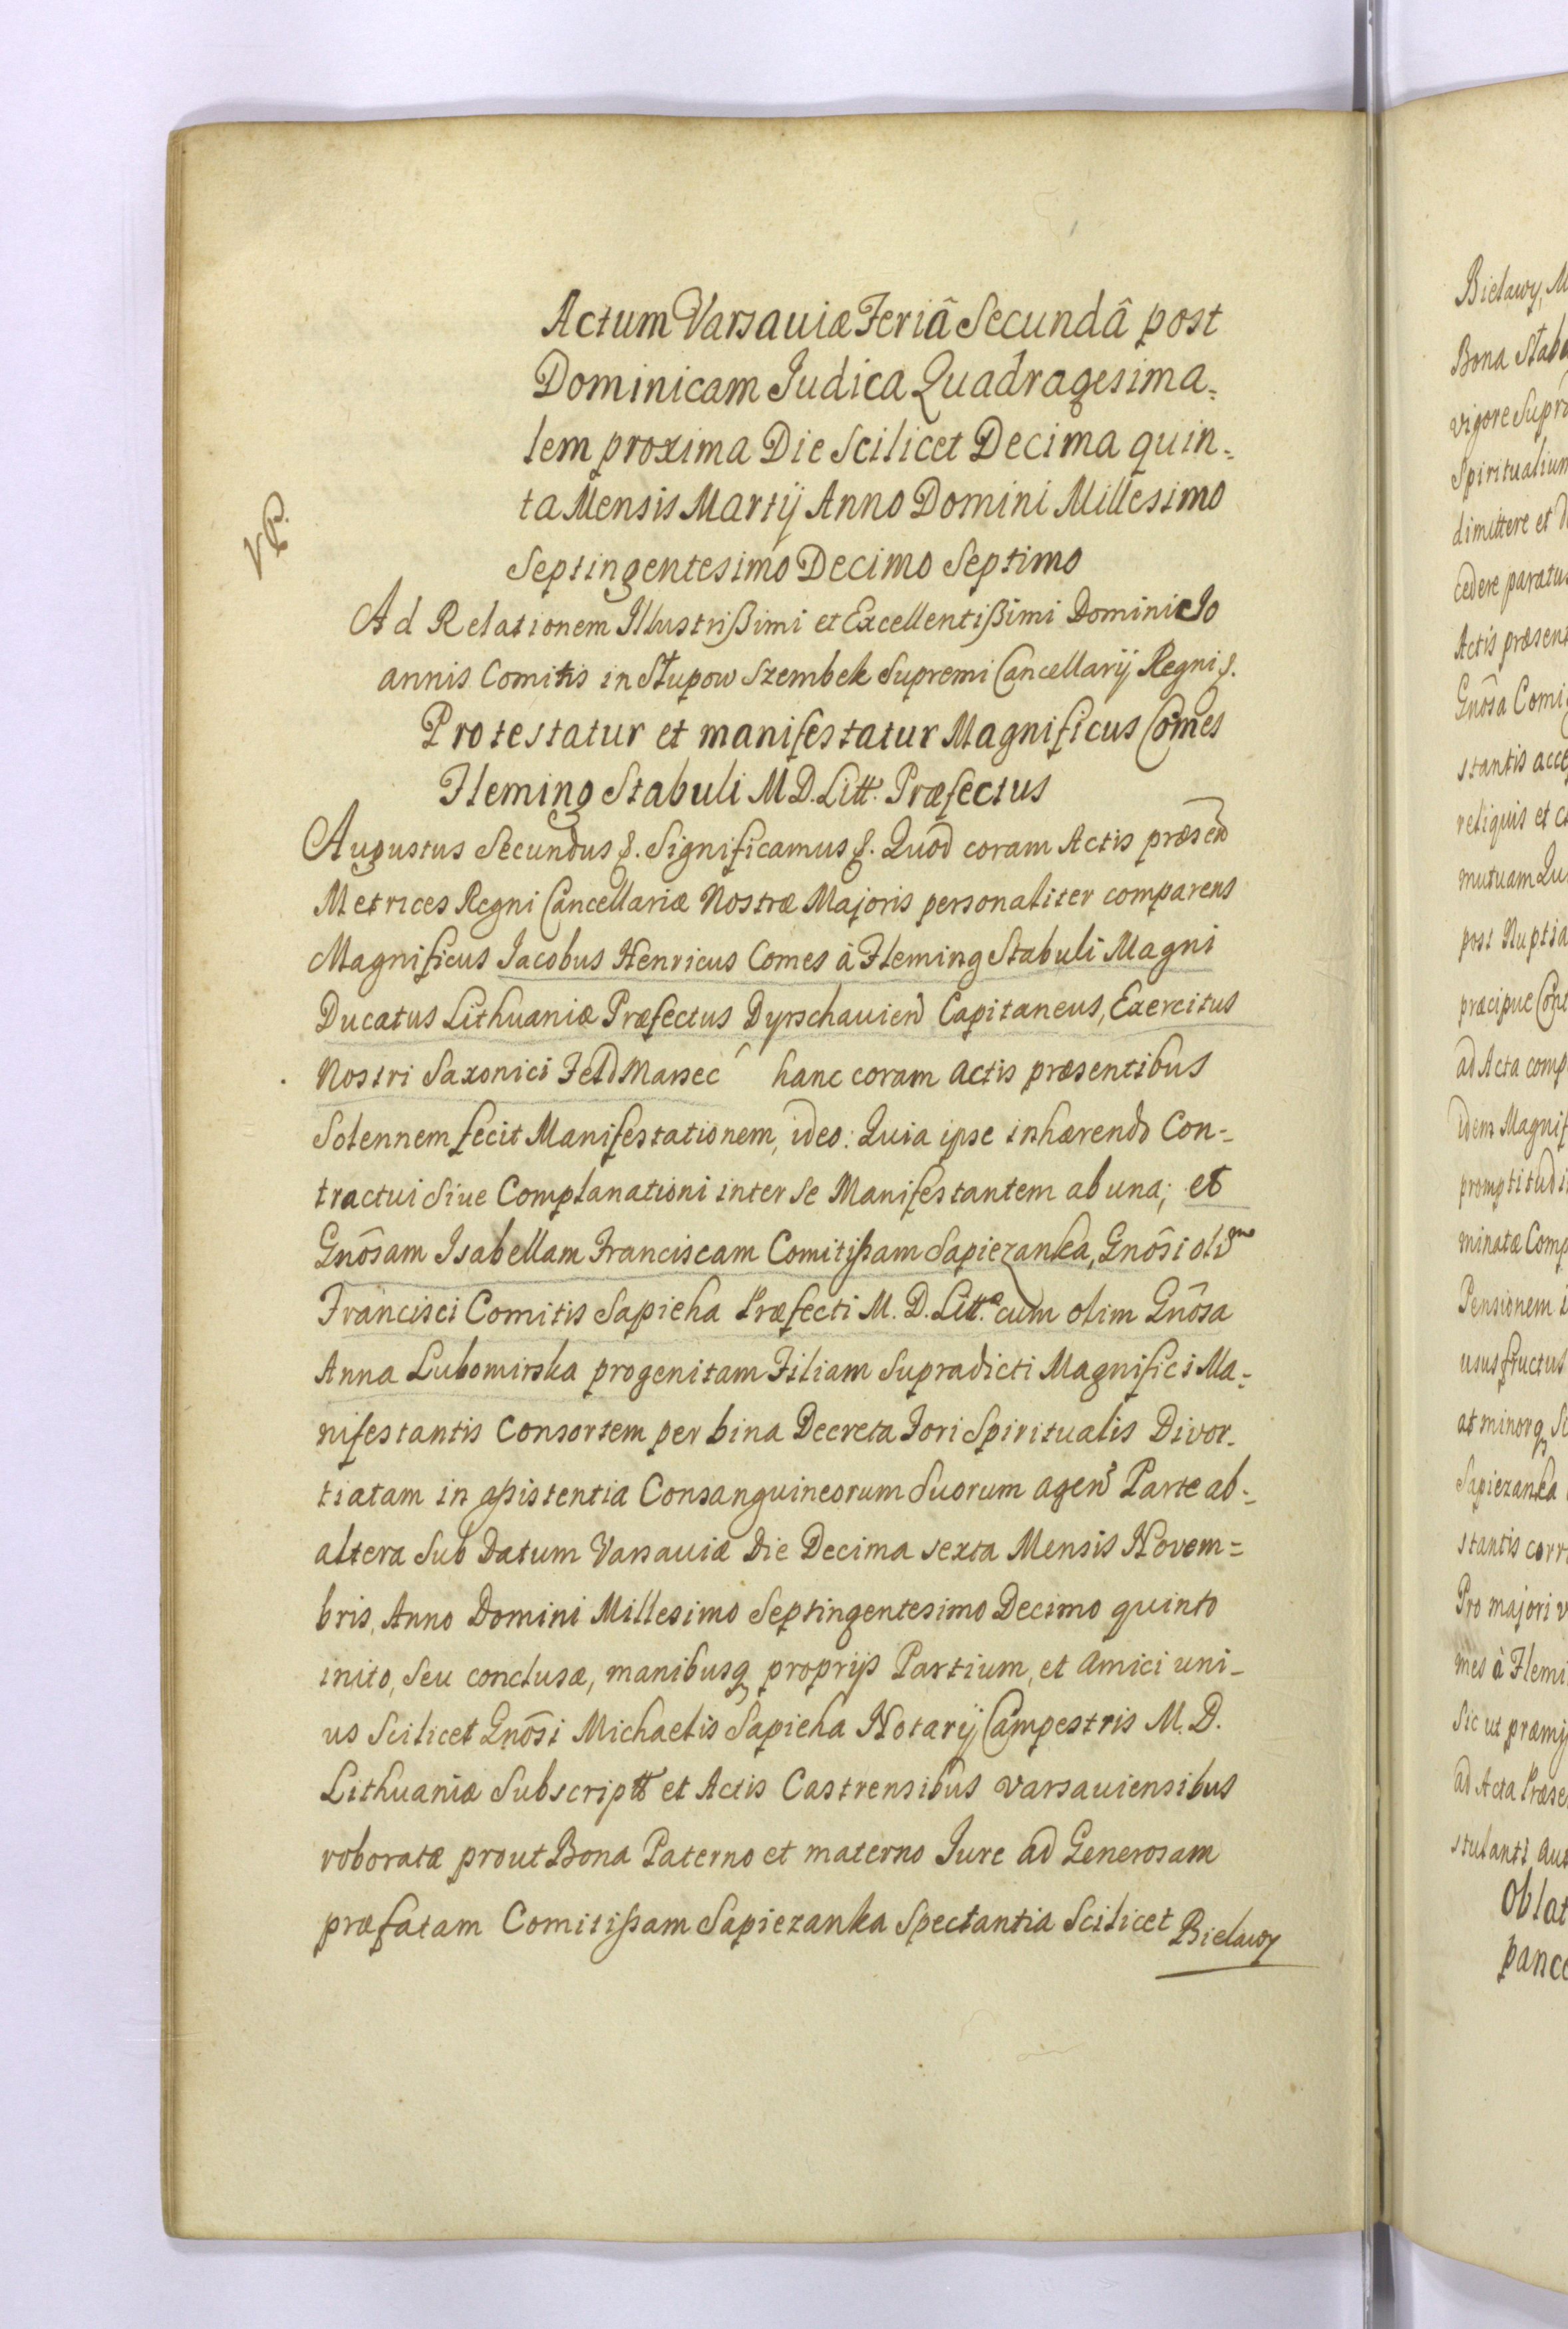 Actum Varsaviæ Feriâ Secundâ post
Dominicam Judica Quadragesima=
lem proxima Die Scilicet Decima quin=
ta Mensis Martij Anno Domini Millesimo
Septingentesimo Decimo Septimo
VP.
Ad Relationem Illustrißimi et Excellentißimi Domini Jo
annis Comitis in Słupow Szembek Supremi Cancellarij Regni &.
Protestatur et manifestatur Magnificus Comes
Fleming Stabuli M D. Litt. Præfectus
Augustus Secundus &. Significamus &. Quod coram Actis præsen
Metrices Regni Cancellariæ Nostræ Majoris personaliter comparens
Magnificus Jacobus Henricus Comes à Fleming Stabuli Magni
Ducatus Lithuaniæ Præfectus Dyrschavien Capitaneus, Exercitus
Nostri Saxonici Feld Marsec hanc coram actis præsentibus
Solennem fecit Manifestationem, ideo: Quia ipse inhærendo Con=
tractui Siue Complanationi inter Se Manifestantem ab una; et
Gnôsam Isabellam Franciscam Comitißam Sapiezanka, Gnôsi olim
Francisci Comitis Sapieha Præfecti M. D. Litt. cum olim Gnôsa
Anna Lubomirska progenitam Filiam Supradicti Magnifici Ma=
nifestantis Consortem per bina Decreta Fori Spiritualis Divor=
tiatam in aßistentia Consanguineorum Suorum agen Parte ab=
altera Sub Datum Varsaviæ Die Decima sexta Mensis Novem=
bris, Anno Domini Millesimo Septingentesimo Decimo quinto
inito, Seu conclusæ, manibusq proprijs Partium, et Amici uni=
us Scilicet Gnôsi Michaelis Sapieha Notarij Campestris M. D.
Lithuaniæ Subscriptt et Actis Castrensibus varsauiensibus
roboratæ prout Bona Paterno et materno Jure ad Generosam
præfatam Comitißam Sapiezanka Spectantia Scilicet Bielawy
Bielawy, M
Bona Stab
vigore Supra
Spiritualium
dimittere et
cedere paratus
Actis præsent
Gnôsa Comi
stantis acce
reliquis et c
mutuam Qu
post Nuptia
præcipue Cont
ad Acta comp
idem Magnif
promptitudi
minatæ Comp
Pensionem
usus fructus
at minorq Se
Sapiezanka
stantis corr
Pro majori v
mes à Flemi
Sic ut præmi
ad Acta Præse
stulanti Aut
Oblat
panco